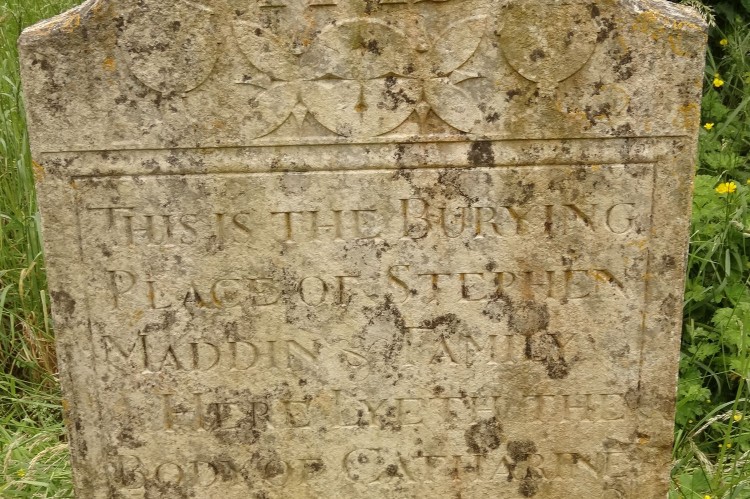 THIS IS THE BURYING
PLACE OF STEPHEN
MADDIN'S FAMILY
HERE LYETH THE
BODY OF CATHARINE